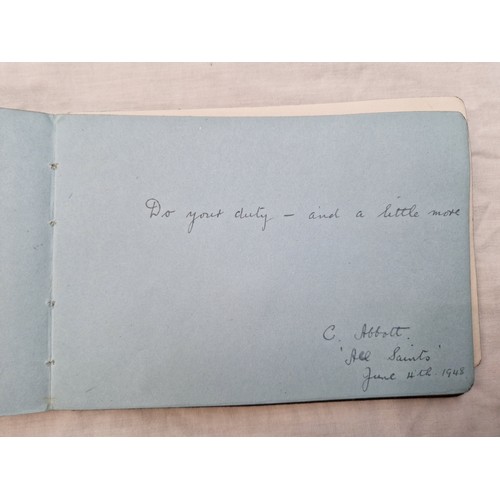 Do your duty – and a little more
C. Abbott.
'All Saints'
June 4th. 1948